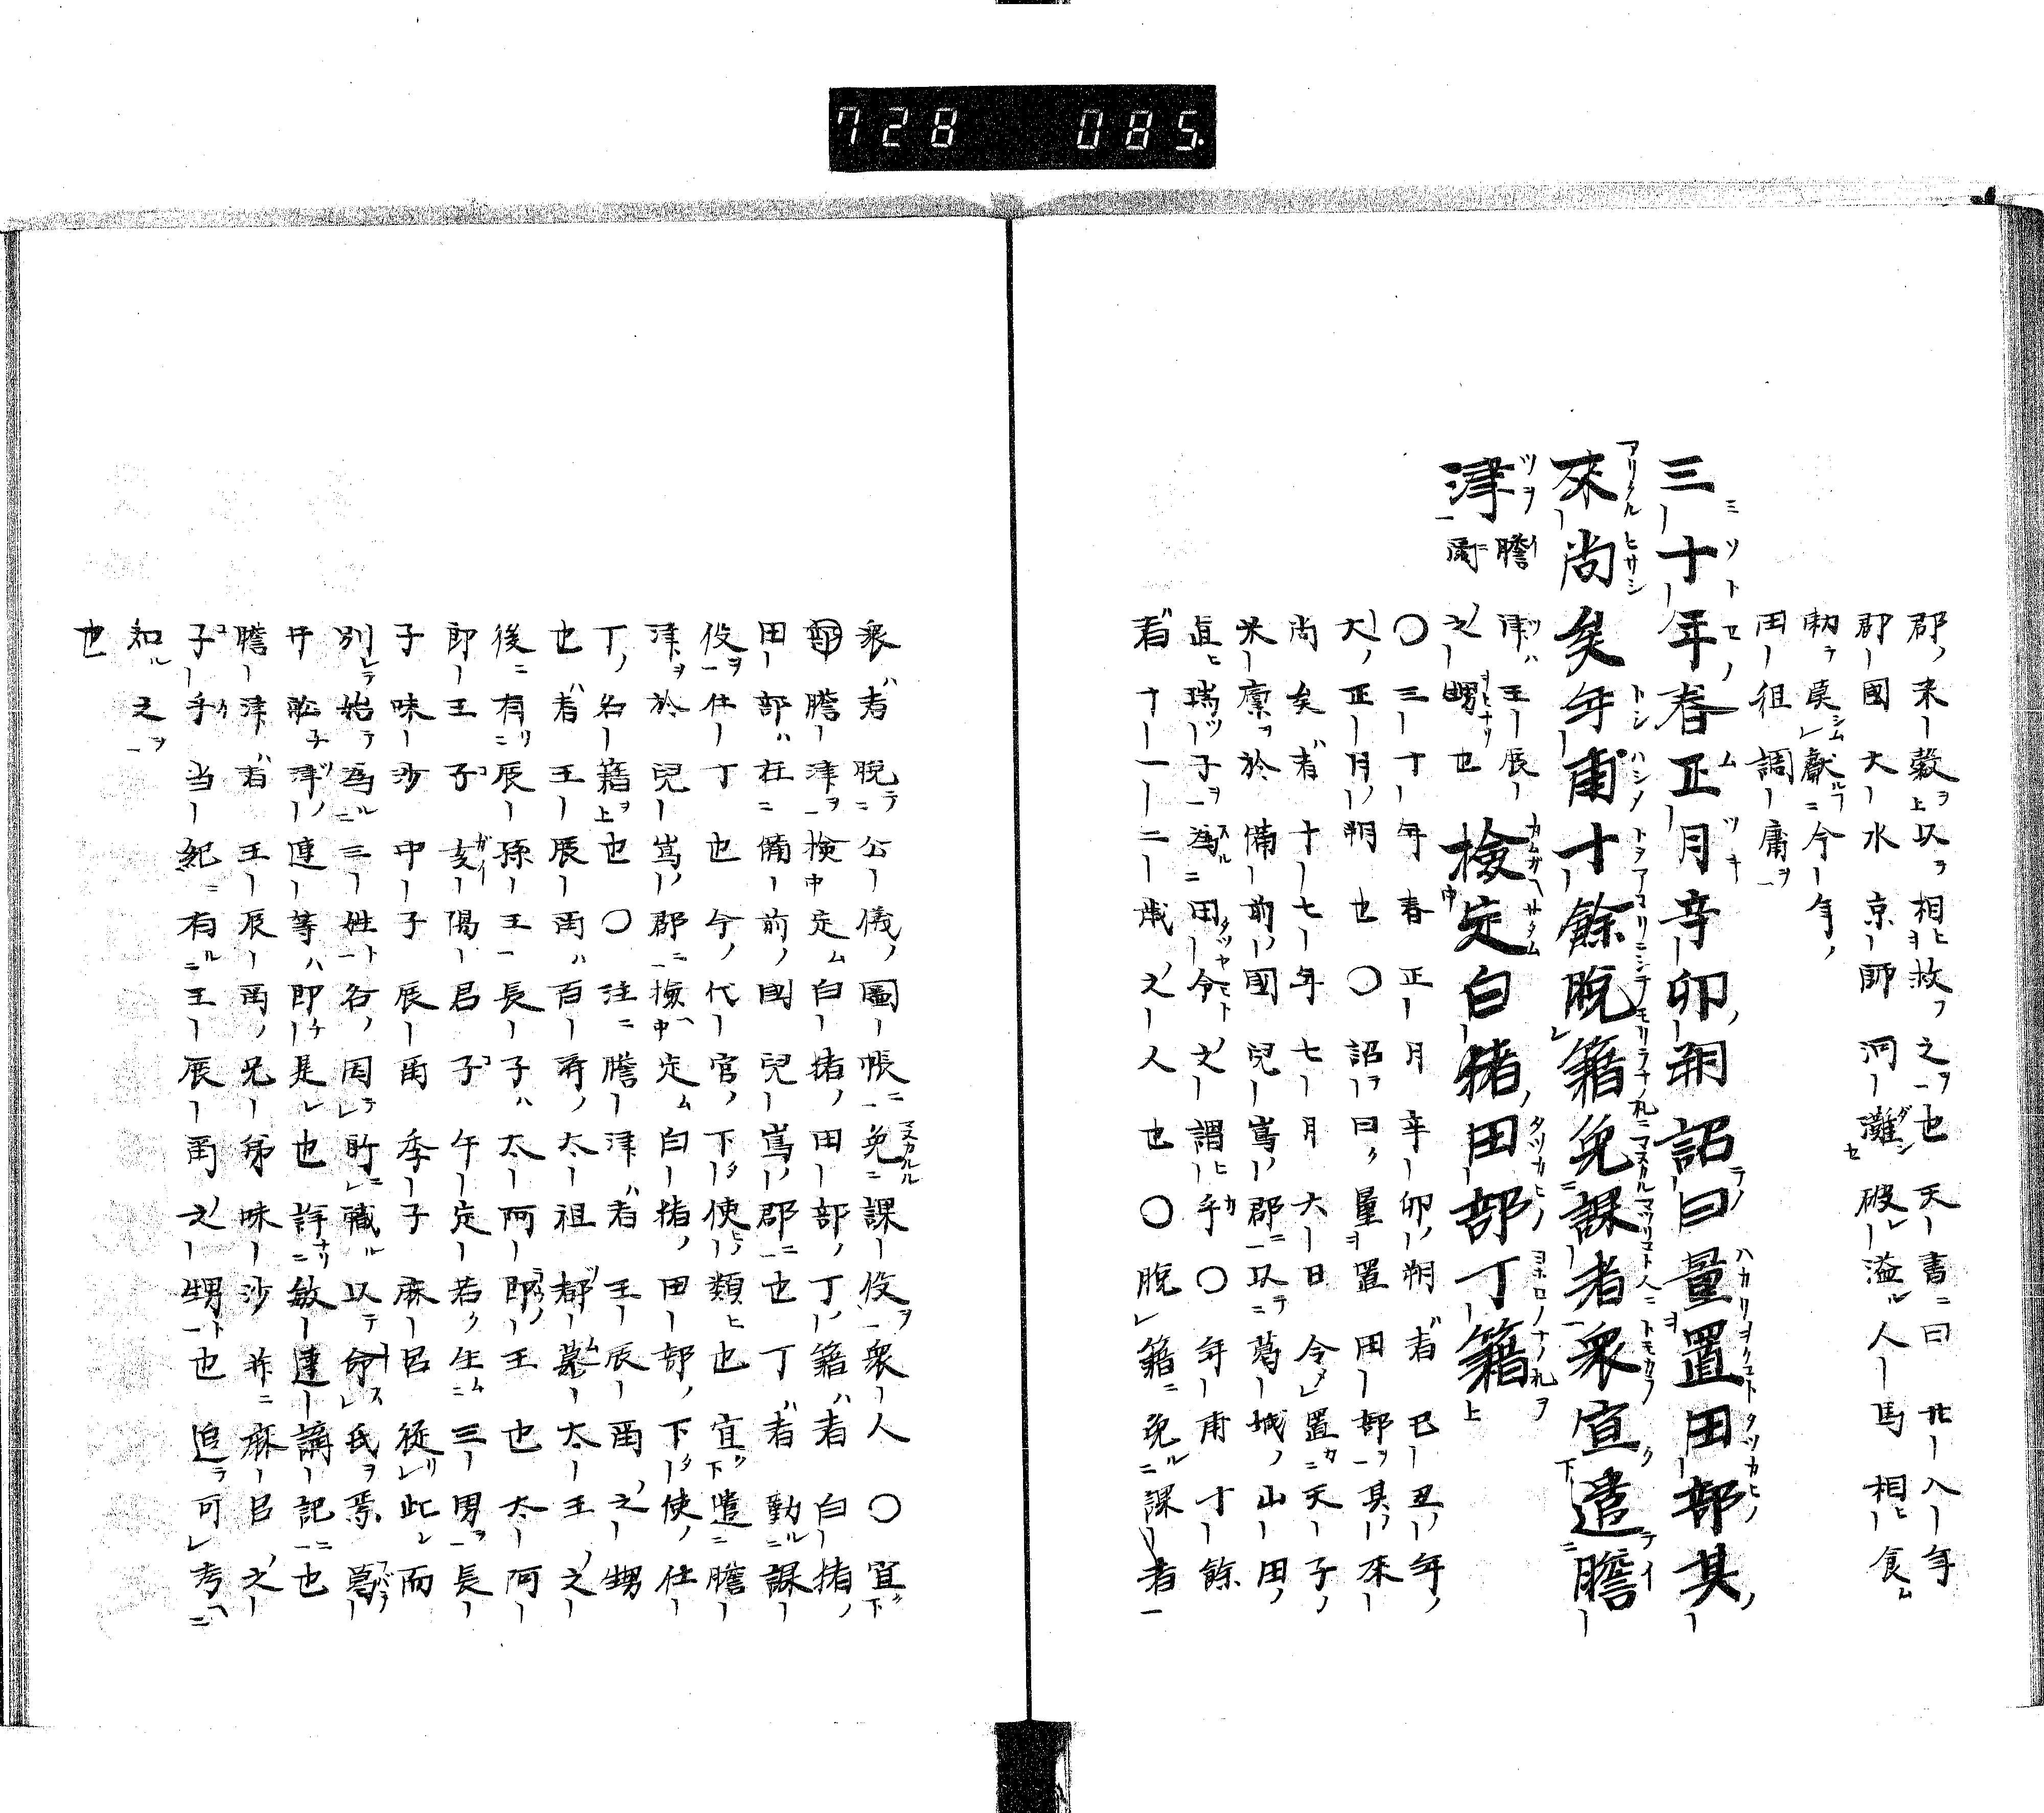 728 085.
郡ノ来穀ヲ以ヲ相ヒ救フ之ヲ也天書ニ曰廿八年
郡國大水京師河灘破レ溢ル人馬相ヒ食ム
勅ラ莫シム献ルフ今年ノ
田徂調庸ヲ
三十年春正月辛卯朔詔曰量置田部其
來尚矣年甫十餘脱籍免課者衆宜遣膽
津膽津ハ王辰爾之甥也檢定白猪田部丁籍
〇三十年春正月辛卯ノ朔者己丑ノ年ノ
大ノ正月ノ朔也〇詔ヲ曰ク量ヲ置田部ヲ其ノ來
尚矣者十七年七月六日令置ニ天子ノ
米廩ヲ於備前ノ國兒嶌ノ郡ニ以テ葛城ノ山田ノ
直ヒ瑞子ヲ為ルニ田令ノ之謂ヒ乎〇年甫十餘
者十一二歳ノ之人也〇脱籍ニ免ルニ課者
衆者脱テ公儀ノ圖帳ニ免ニ課伇ヲ衆人〇宜
部膽津ヲ検定ム白猪ノ田部ノ丁ノ籍ハ者白猪ノ
田部ハ在ニ備前ノ國兒嶌ノ郡ニ也丁者勤ルニ課
伇ヲ仕丁也今ノ代官ノ下使ノ類ヒ也宜遣ニ膽
津ヲ於兒嶌ノ郡ニ撿定ム白猪ノ田部ノ下使ノ仕
丁ノ名籍ヲ也〇注ニ膽津者王辰爾ノ之甥
也者王辰爾ハ百済ノ太祖都慕太王ノ之
後ニ有リ辰孫王長子ハ太阿郎王也太阿
郎王子亥陽君子午定君ク生ム三男ヲ長
子味沙中子辰爾季子麻呂従リ此レ而
別レテ始テ為ル三姓ト各ノ因テ所ニ職ル以テ命ス氏ヲ焉葛
井舩津ノ連等ハ即チ是レ也詳ナリ敏達講記ニ也
膽津者王辰爾ノ兄弟味沙并ニ麻呂ノ之
子乎当紀ニ有ルニ王辰爾之甥ト也追ラ可レ考ヘ
知ル之ヲ
也